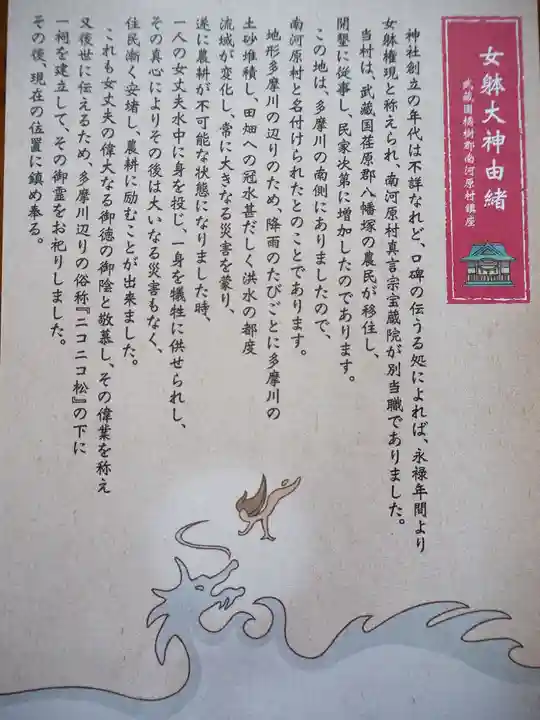 女躰大神由緒
武蔵国橘樹郡南河原村鎮座
神社創立の年代は不詳なれど、口碑の伝うる処によれば、永禄年間より
女躰権現と称えられ、南河原村真言宗宝蔵院が別当職でありました。
当村は、武蔵国荏原郡八幡塚の農民が移住し、
開墾に従事し、民家次第に増加したのであります。
この地は、多摩川の南側にありましたので、
南河原村と名付けられたとのことであります。
地形多摩川の辺りのため、降雨のたびごとに多摩川の
土砂堆積し、田畑への冠水甚だしく洪水の都度
流域が変化し、常に大きなる災害を蒙り、
遂に農耕が不可能な状態になりました時、
一人の女丈夫水中に身を投じ、一身を犠牲に供せられし、
その真心によりその後は大いなる災害もなく、
住民漸く安堵し、農耕に励むことが出来ました。
これも女丈夫の偉大なる御徳の御陰と敬慕し、その偉業を称え
又後世に伝えるため、多摩川辺りの俗称『ニコニコ松』の下に
一祠を建立して、その御霊をお祀りしました。
その後、現在の位置に鎮め奉る。